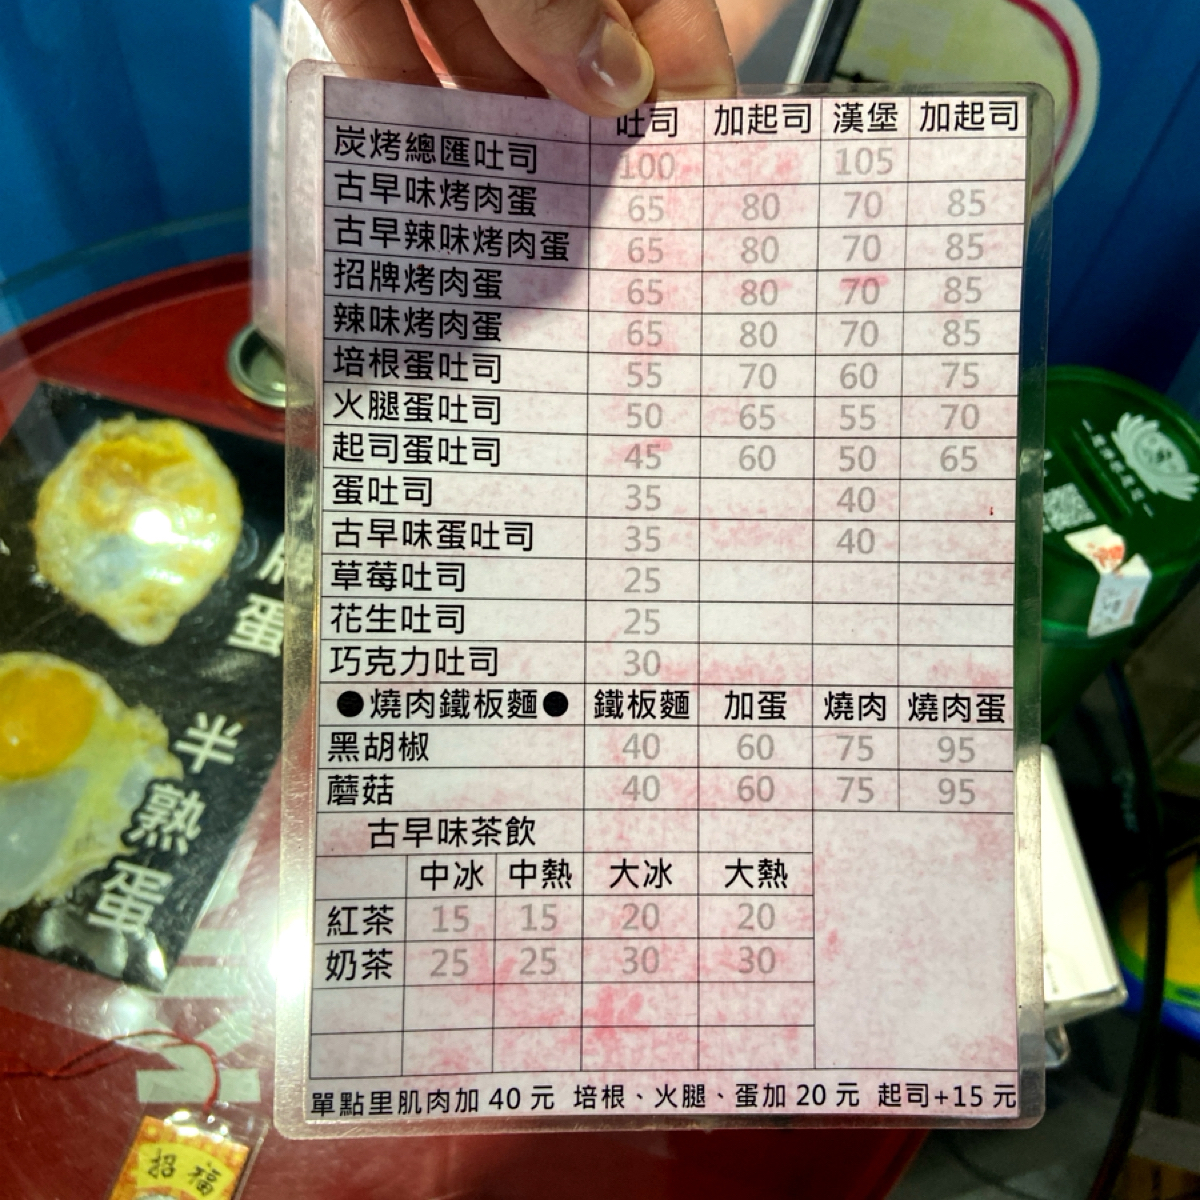 吐司 加起司 漢堡 加起司
炭烤總匯吐司 100 105
古早味烤肉蛋 65 80 70 85
古早辣味烤肉蛋 65 80 70 85
招牌烤肉蛋 65 80 70 85
辣味烤肉蛋 65 80 70 85
培根蛋吐司 55 70 60 75
火腿蛋吐司 50 65 55 70
起司蛋吐司 45 60 50 65
蛋吐司 35 40
古早味蛋吐司 35 40
草莓吐司 25
花生吐司 25
巧克力吐司 30
●燒肉鐵板麵● 鐵板麵 加蛋 燒肉 燒肉蛋
黑胡椒 40 60 75 95
蘑菇 40 60 75 95
古早味茶飲
中冰 中熱 大冰 大熱
紅茶 15 15 20 20
奶茶 25 25 30 30
單點里肌肉加 40 元 培根、火腿、蛋加 20 元 起司+15 元
蛋
半熟蛋
招福